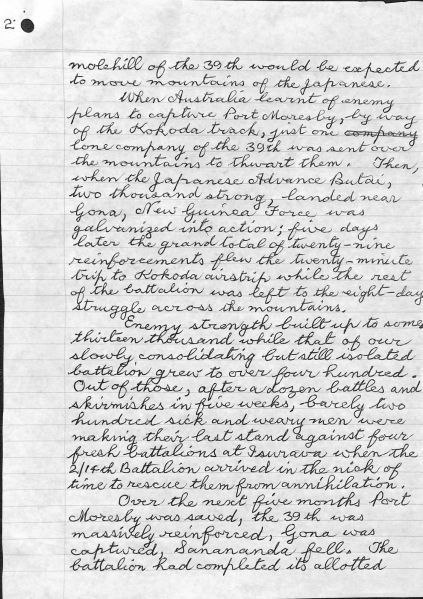 2
molehill of the 39th would be expected
to move mountains of the Japanese.
When Australia learnt of enemy
plans to capture Port Moresby, by way
of the Kokoda track, just one company
lone company of the 39th was sent over
the mountains to thwart them. Then,
when the Japanese Advance Butai,
two thousand strong, landed near
Gona, New Guinea Force was
galvanized into action; five days
later the grand total of twenty-nine
reinforcements flew the twenty-minute
trip to Kokoda airstrip while the rest
of the battalion was left to the eight-day
struggle across the mountains.
Enemy strength built up to some
thirteen thousand while that of our
slowly consolidating but still isolated
battalion grew to over four hundred.
Out of those, after a dozen battles and
skirmishes in five weeks, barely two
hundred sick and weary men were
making their last stand against four
fresh battalions at Isurava when the
2/14th Battalion arrived in the nick of
time to rescue them from annihilation.
Over the next five months Port
Moresby was saved, the 39th was
massively reinforced, Gona was
captured, Sanananda fell. The
battalion had completed its allotted